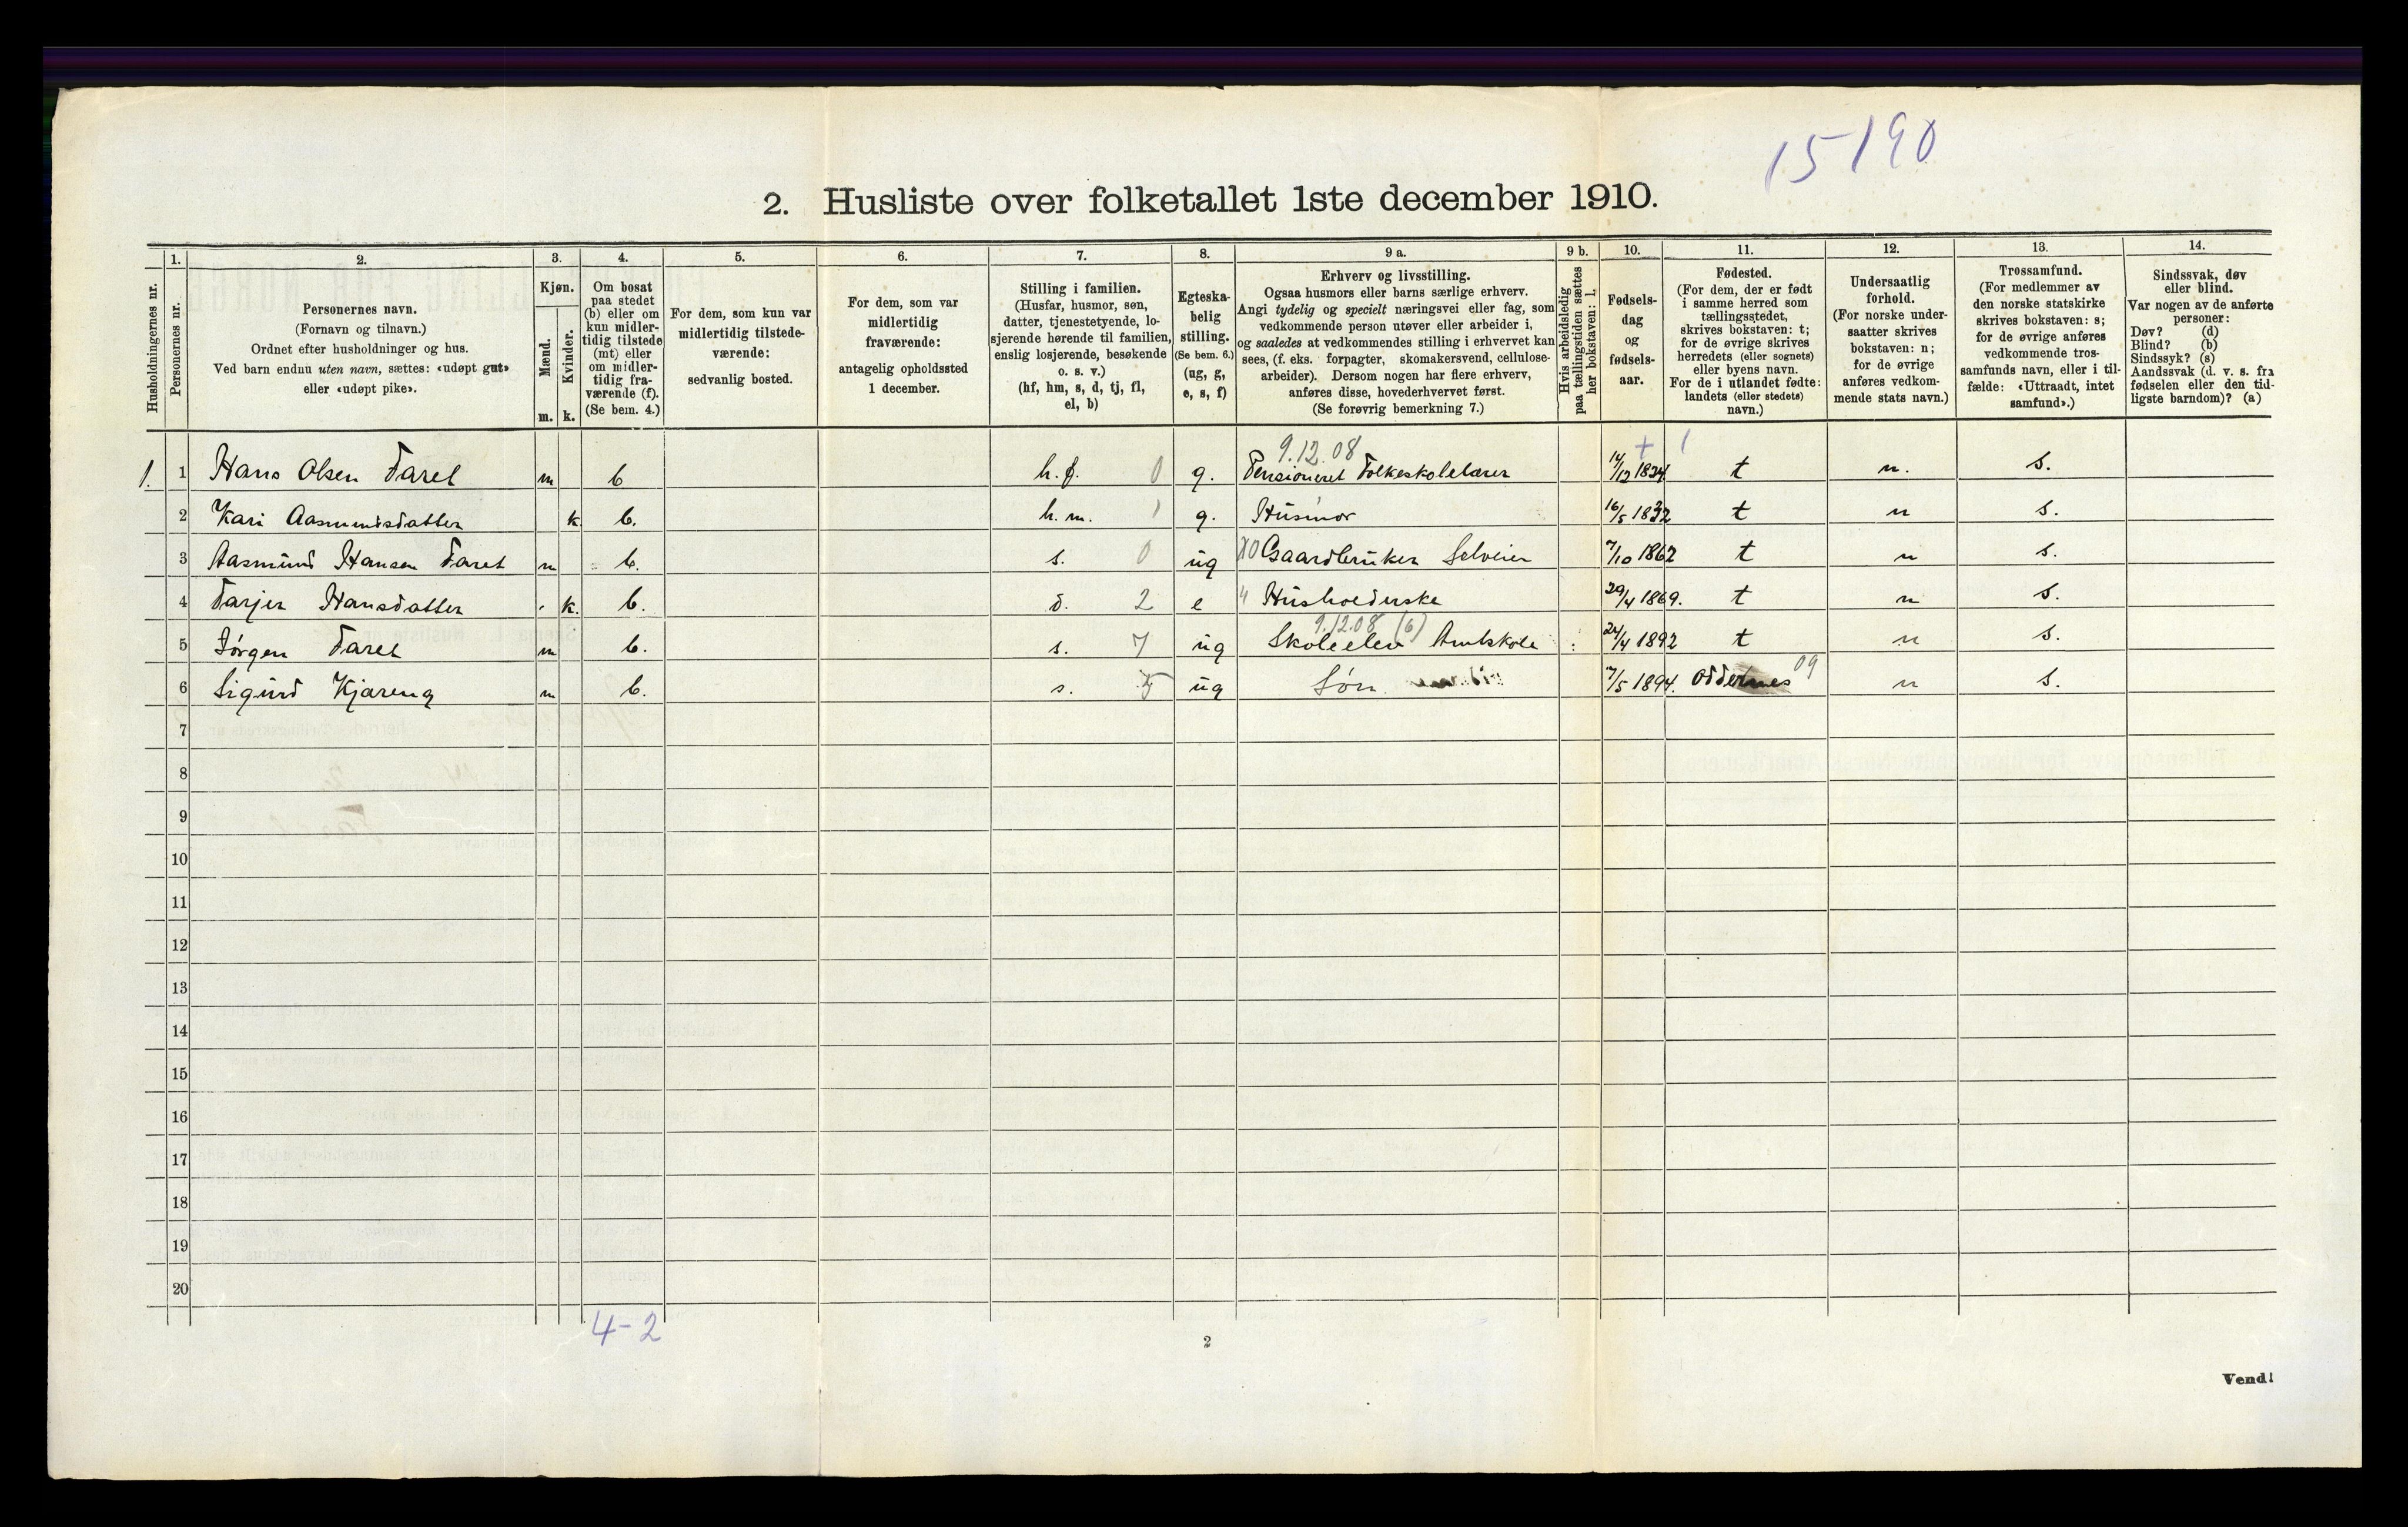 15190
2. Husliste over folketallet 1ste december 1910.
Husholdningernes nr.
1.
Personernes nr.
2.
Personernes navn.
(Fornavn og tilnavn.)
Ordnet efter husholdninger og hus.
Ved barn endnu uten navn, sættes: «udøpt gut»
eller «udøpt pike».
3.
Kjøn.
Mænd.
Kvinder.
m. k.
4.
Om bosat
paa stedet
(b) eller om
kun midler-
tidig tilstede
(mt) eller
om midler-
tidig fra-
værende (f).
(Se bem. 4.)
5.
For dem, som kun var
midlertidig tilstede-
værende:
sedvanlig bosted.
6.
For dem, som var
midlertidig
fraværende:
antagelig opholdssted
1 december.
7.
Stilling i familien.
(Husfar, husmor, søn,
datter, tjenestetyende, lo-
sjerende hørende til familien,
enslig losjerende, besøkende
o. s. v.)
(hf, hm, s, d, tj, fl,
el, b)
8.
Egteska-
belig
stilling.
(Se bem. 6.)
(ug, g,
e, s, f)
9 a.
Erhverv og livsstilling.
Ogsaa husmors eller barns særlige erhverv.
Angi tydelig og specielt næringsvei eller fag, som
vedkommende person utøver eller arbeider i,
og saaledes at vedkommendes stilling i erhvervet kan
sees, (f. eks. forpagter, skomakersvend, cellulose-
arbeider). Dersom nogen har flere erhverv,
anføres disse, hovederhvervet først.
(Se forøvrig bemerkning 7.)
9 b.
Hvis arbeidsledig
paa tællingstiden sættes
her bokstaven: l.
10.
Fødsels-
dag
og
fødsels-
aar.
11.
Fødested.
(For dem, der er født
i samme herred som
tællingsstedet,
skrives bokstaven: t;
for de øvrige skrives
herredets (eller sognets)
eller byens navn.
For de i utlandet fødte:
landets (eller stedets)
navn.)
12.
Undersaatlig
forhold.
(For norske under-
saatter skrives
bokstaven: n;
for de øvrige
anføres vedkom-
mende stats navn.)
13.
Trossamfund.
(For medlemmer av
den norske statskirke
skrives bokstaven: s;
for de øvrige anføres
vedkommende tros-
samfunds navn, eller i til-
fælde: «Uttraadt, intet
samfund».)
14.
Sindssvak, døv
eller blind.
Var nogen av de anførte
personer:
Døv? (d)
Blind? (b)
Sindssyk? (s)
Aandssvak (d. v. s. fra
fødselen eller den tid-
ligste barndom)? (a)
9.12.08 + 1
1. 1 Hans Olsen Faret m b h.f. 0 g. Pensioneret Folkeskolelærer 14/12 1834 t n. s.
2 Kari Aasmundsdatter k. b. h.m. 1 g. Husmor 16/5 1832 t n s.
3 Aasmund Hansen Faret m b. s. 0 ug X0 Gaardbruker Selveier 7/10 1862 t n s.
4 Tarjer Hansdatter k. b. d. 2 e 4 Husholderske 29/4 1869. t n s.
9.12.08 (6)
5 Jørgen Faret m b. s. 7 ug Skoleelev Amtskole 24/4 1892 t n s.
6 Sigurd Kjæreng m b. s. 5 ug Søn 7/5 1894. Oddernes 09 n s.
7
8
9
10
11
12
13
14
15
16
17
18
19
20
4-2
2
Vend!